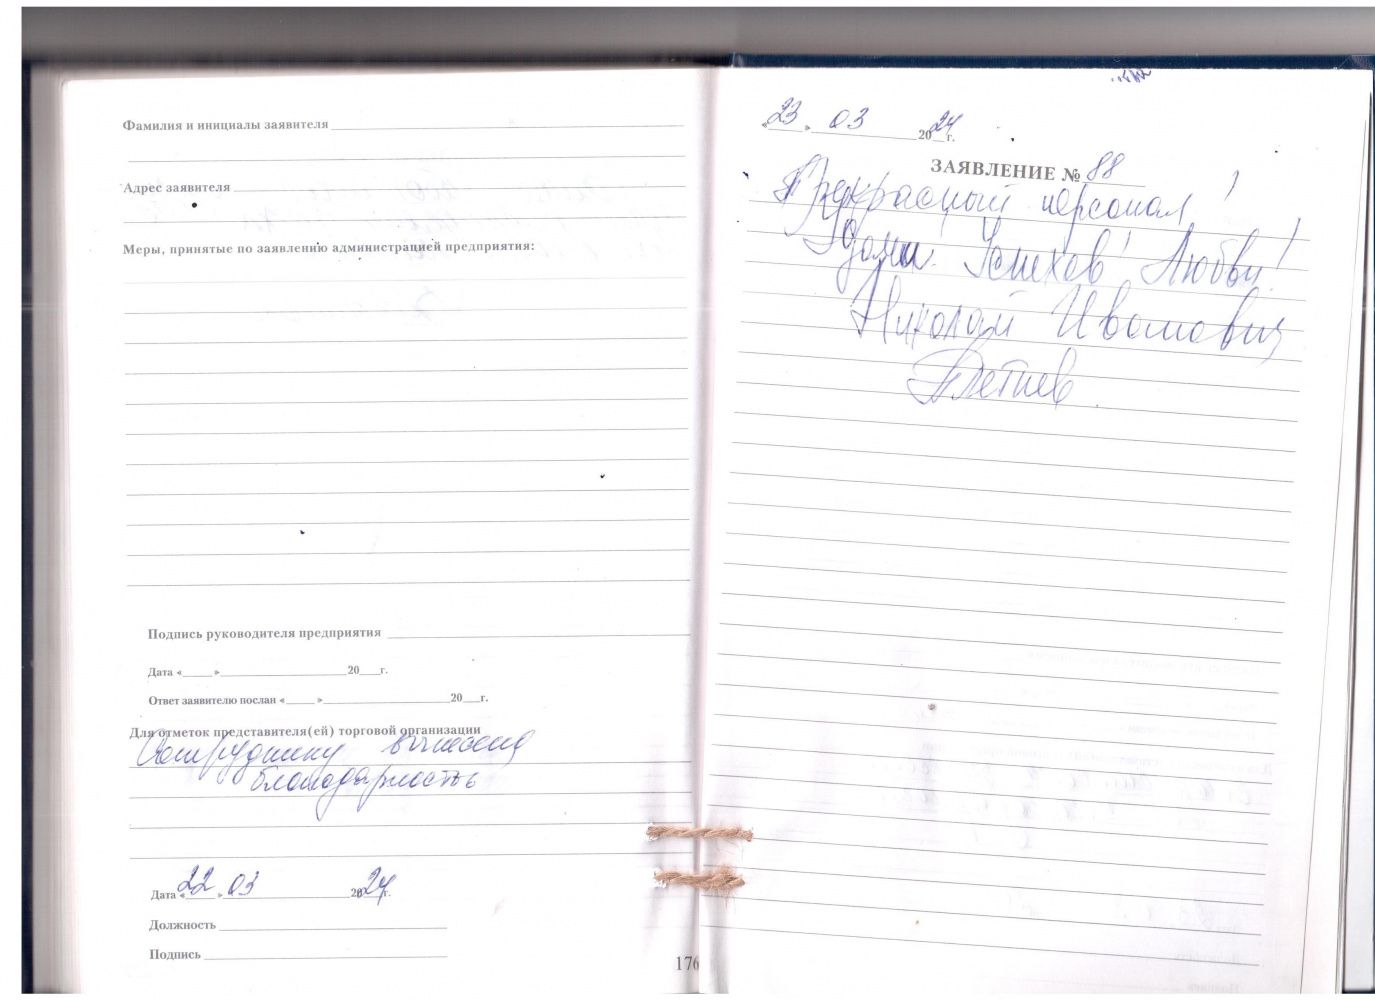 Фамилия и инициалы заявителя
Адрес заявителя
Меры, принятые по заявлению администрацией предприятия:
Подпись руководителя предприятия
Дата « » 20 г.
Ответ заявителю послан « » 20 г.
Для отметок представителя(ей) торговой организации
Сотруднику вынесена
благодарность
Дата «22» 03 2024г.
Должность
Подпись
176
«23» 03 2024г.
ЗАЯВЛЕНИЕ № 88
Прекрасный персонал!
Удачи! Успехов! Любви!
Николай Иванович